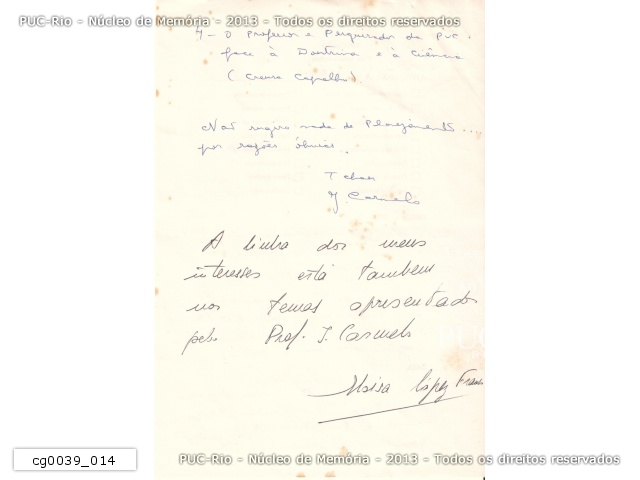 PUC-Rio - Núcleo de Memória - 2013 - Todos os direitos reservados
4 - O Professor e Pesquisador da PUC
face à Doutrina e à Ciência
(Creusa Capalbo)
Não sugiro nada de Planejamento....
por razões óbvias..
J. Carmelo
A linha dos meus
interesses está tambem
nos temas apresentados
pelo Prof. J. Carmelo
López
cg0039_014
PUC-Rio - Núcleo de Memória - 2013 - Todos os direitos reservados